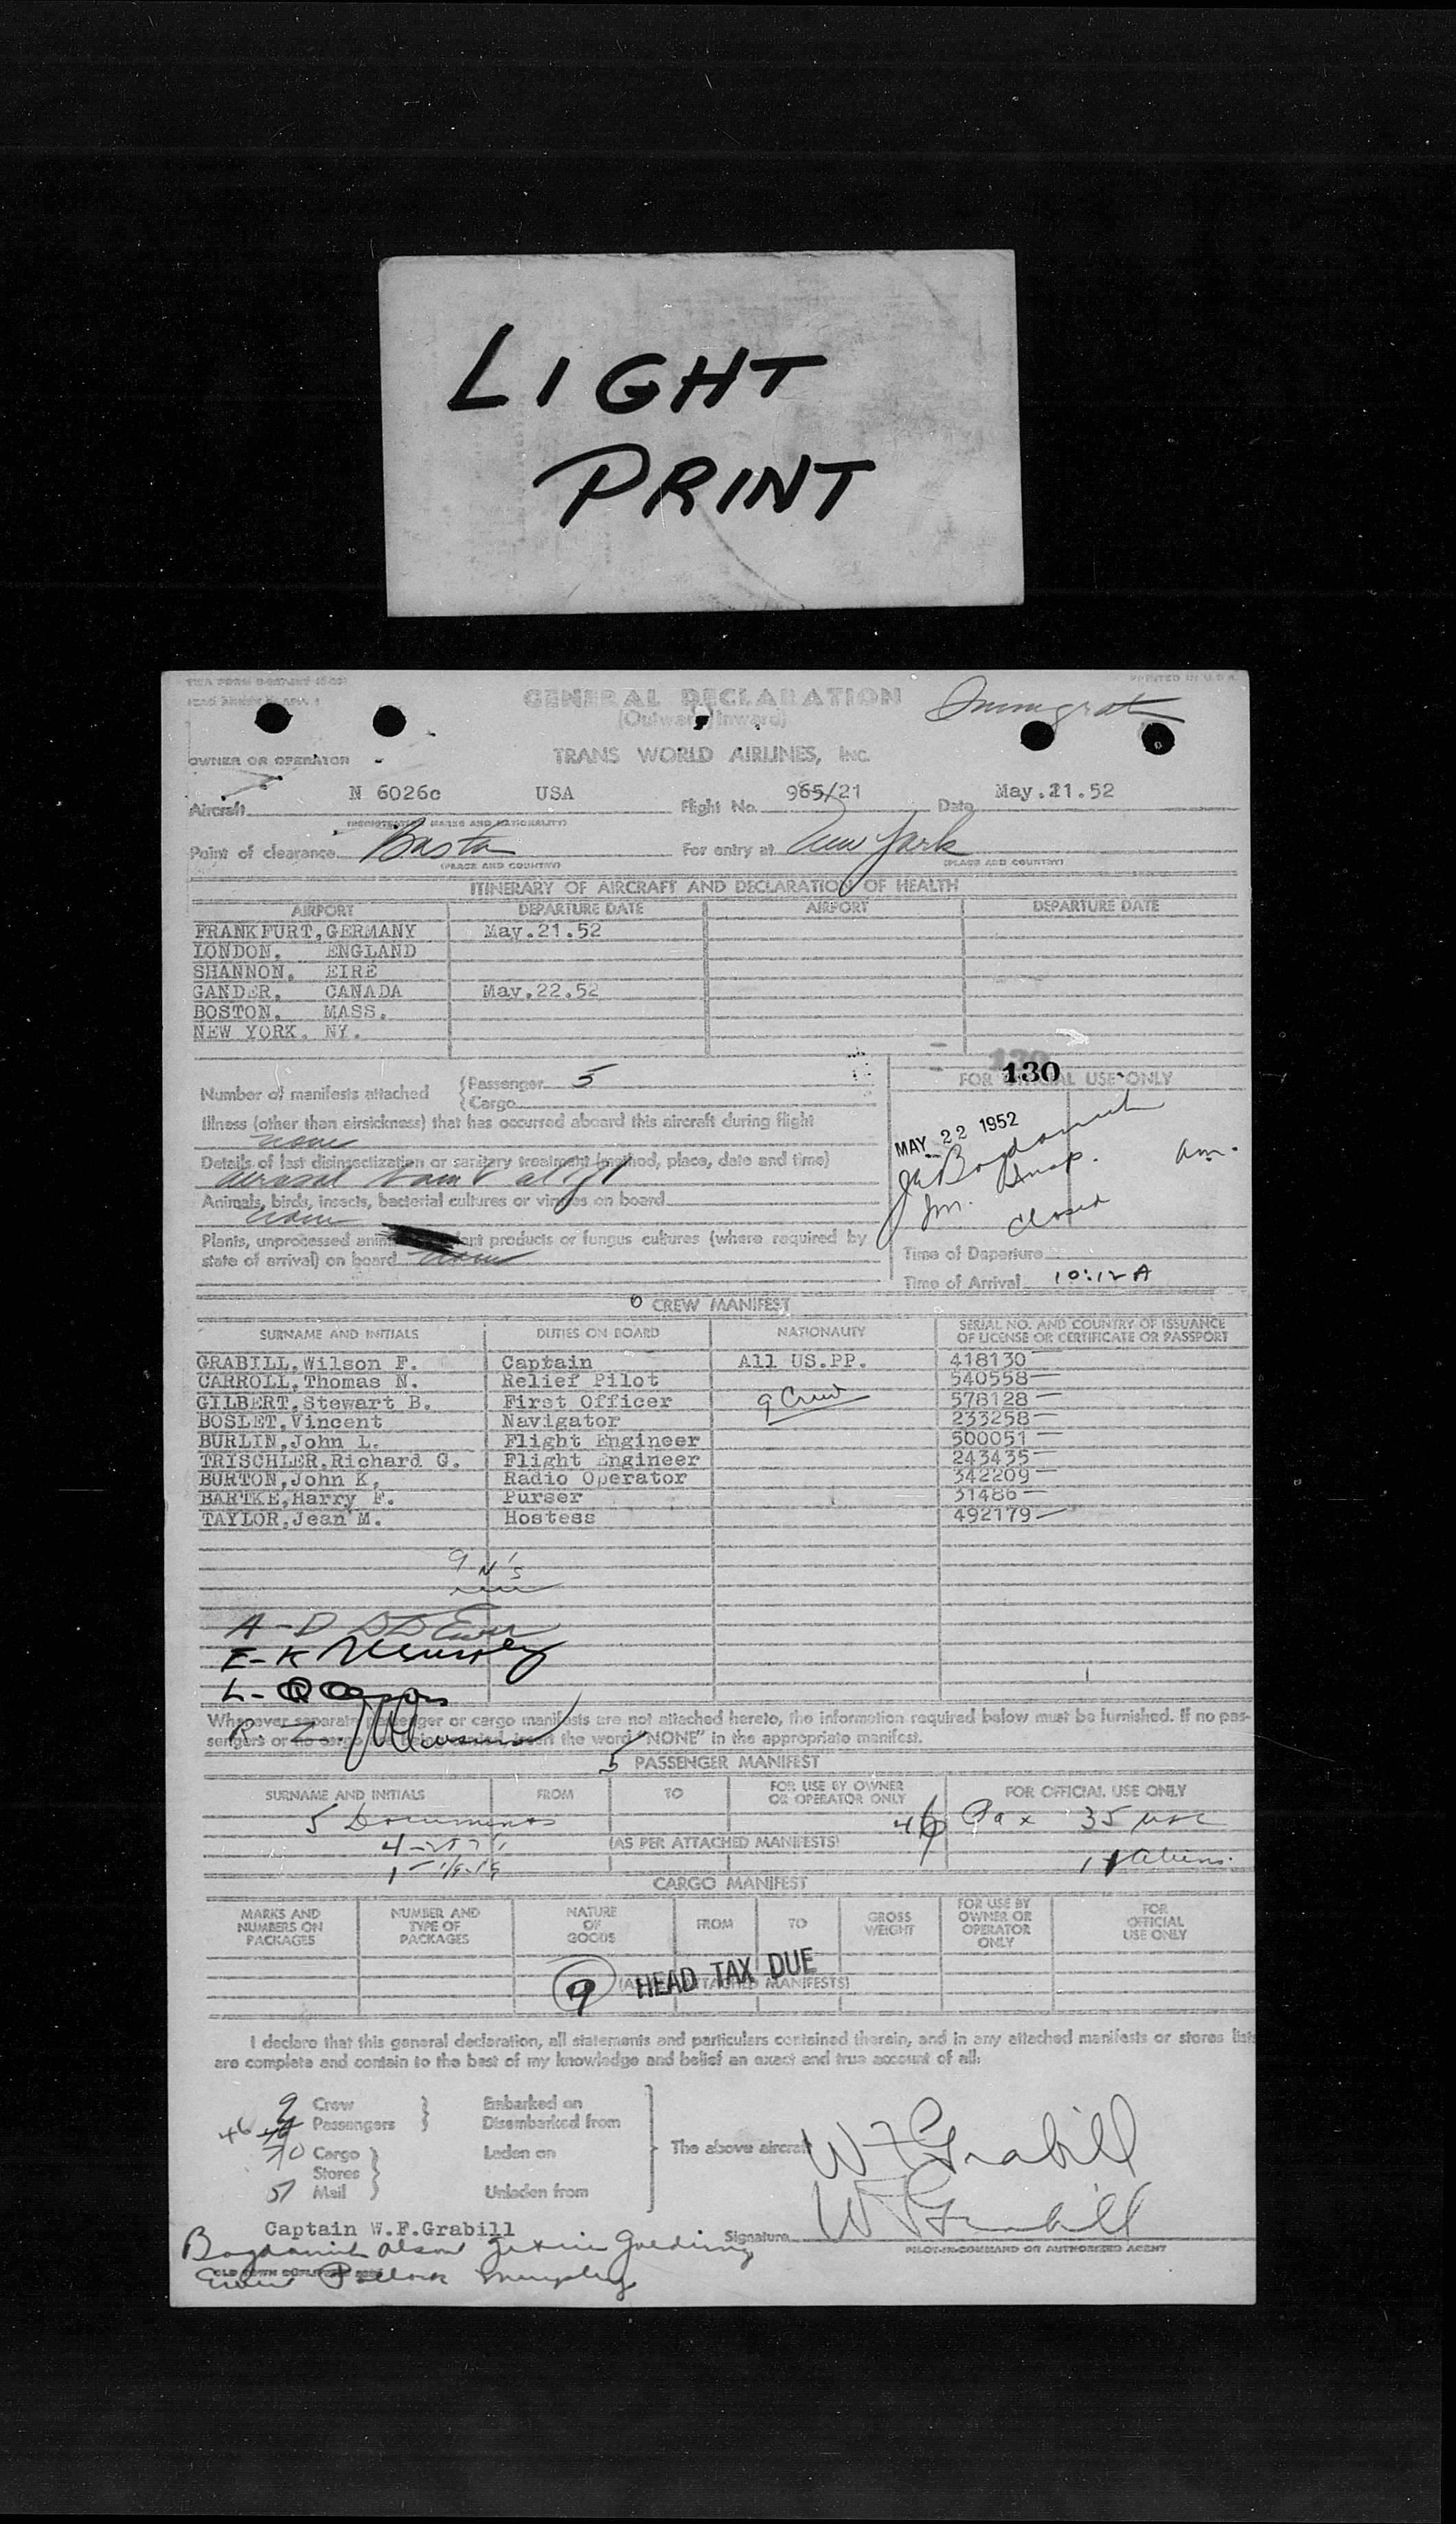 LIGHT
PRINT
PRINTED IN U.S.A.
GENERAL DECLARATION
(Outward/Inward)
OWNER OR OPERATOR
TRANS WORLD AIRLINES, Inc.
Aircraft N 6026c USA Flight No. 965/21 Date May.21.52
(REGISTRATION MARKS AND NATIONALITY)
Point of clearance Boston For entry at New York
(PLACE AND COUNTRY) (PLACE AND COUNTRY)
ITINERARY OF AIRCRAFT AND DECLARATION OF HEALTH
AIRPORT DEPARTURE DATE AIRPORT DEPARTURE DATE
FRANKFURT,GERMANY May.21.52
LONDON, ENGLAND
SHANNON, EIRE
GANDER, CANADA May.22.52
BOSTON, MASS.
NEW YORK. NY.
130
FOR OFFICIAL USE ONLY
Number of manifests attached {Passenger 5
{Cargo
MAY 22 1952
Illness (other than airsickness) that has occurred aboard this aircraft during flight
none
Details of last disinsectization or sanitary treatment (method, place, date and time)
aerosol
Animals, birds, insects, bacterial cultures or viruses on board
none
Insp.
am.
closed
Plants, unprocessed plant products or fungus cultures (where required by
state of arrival) on board none
Time of Departure
Time of Arrival 10:12 A
CREW MANIFEST
SURNAME AND INITIALS DUTIES ON BOARD NATIONALITY SERIAL NO. AND COUNTRY OF ISSUANCE
OF LICENSE OR CERTIFICATE OR PASSPORT
GRABILL,Wilson F. Captain All US.PP. 418130
CARROLL,Thomas N. Relief Pilot 540558
GILBERT,Stewart B. First Officer 9 Crew 578128
BOSLET,Vincent Navigator 233258
BURLIN,John L. Flight Engineer 500051
TRISCHLER,Richard G. Flight Engineer 243435
BURTON,John K. Radio Operator 342209
BARTKE,Harry F. Purser 31486
TAYLOR,Jean M. Hostess 492179
A-D
E-K Murphy
L-Q
R-Z
Whenever separate passenger or cargo manifests are not attached hereto, the information required below must be furnished. If no pas-
sengers or no cargo insert the word "NONE" in the appropriate manifest.
5 PASSENGER MANIFEST
SURNAME AND INITIALS FROM TO FOR USE BY OWNER
OR OPERATOR ONLY FOR OFFICIAL USE ONLY
5 Documents 46 Pax 35 usc
(AS PER ATTACHED MANIFESTS)
11 Aliens.
CARGO MANIFEST
MARKS AND
NUMBERS ON
PACKAGES
NUMBER AND
TYPE OF
PACKAGES
NATURE
OF
GOODS
FROM
TO
GROSS
WEIGHT
FOR USE BY
OWNER OR
OPERATOR
ONLY
FOR
OFFICIAL
USE ONLY
9 HEAD TAX DUE
(AS PER ATTACHED MANIFESTS)
I declare that this general declaration, all statements and particulars contained therein, and in any attached manifests or stores lists
are complete and contain to the best of my knowledge and belief an exact and true account of all:
9 Crew } Embarked on
46 Passengers } Disembarked from
Cargo } Laden on The above aircraft W F Grabill
Stores
Mail } Unladen from
Captain W.F.Grabill
Signature W F Grabill
PILOT-IN-COMMAND OR AUTHORIZED AGENT
Olson
Pollock Murphy